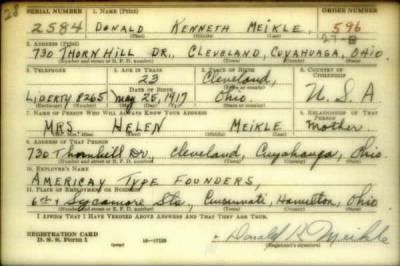 28
SERIAL NUMBER 1. NAME (Print) ORDER NUMBER
2584 DONALD KENNETH MEIKLE 596
(First) (Middle) (Last)
2. ADDRESS (Print)
730 THORNHILL DR., CLEVELAND, CUYAHUAGA, OHIO.
(Number and street or R. F. D. number) (Town) (County) (State)
3. TELEPHONE 4. AGE IN YEARS 5. PLACE OF BIRTH 6. COUNTRY OF CITIZENSHIP
23 Cleveland,
DATE OF BIRTH (Town or county)
LIBERTY 8265 May 25, 1917 Ohio. U. S. A
(Mo.) (Day) (Yr.) (State or country)
7. NAME OF PERSON WHO WILL ALWAYS KNOW YOUR ADDRESS RELATIONSHIP OF THAT PERSON
MRS. HELEN MEIKLE mother.
(Mr., Mrs., Miss) (First) (Middle) (Last)
8. ADDRESS OF THAT PERSON
730 Thornhill Dr, Cleveland, Cuyahanga, Ohio.
(Number and street or R. F. D. number) (Town) (County) (State)
9. EMPLOYER'S NAME
AMERICAY TYPE FOUNDERS,
10. PLACE OF EMPLOYMENT OR BUSINESS
6th & Sycamore Sts., Cincinnati, Hamilton, Ohio
(Number and street or R. F. D. number) (Town) (County) (State)
I AFFIRM THAT I HAVE VERIFIED ABOVE ANSWERS AND THAT THEY ARE TRUE.
REGISTRATION CARD
D. S. S. Form 1 (over) 16-17105 Donald K. Meikle
(Registrant's signature)